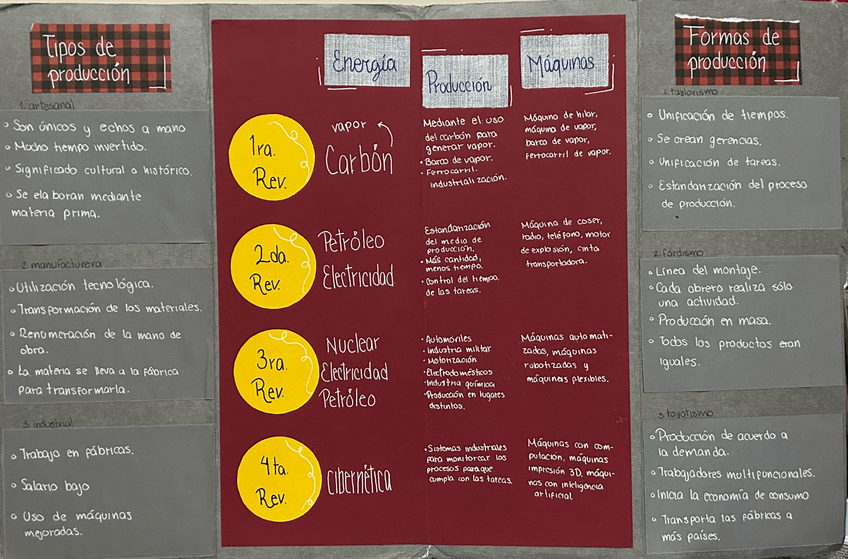 Tipos de
producción
1. artesanal
• Son únicos y echos a mano
• Mucho tiempo invertido.
• Significado cultural o histórico.
• Se elaboran mediante
materia prima.
2. manufacturera
• Utilización tecnológica.
• Transformación de los materiales.
• Renumeración de la mano de
obra.
• La materia se lleva a la fábrica
para transformarla.
3. industrial
• Trabajo en fábricas.
• Salario bajo
• Uso de máquinas
mejoradas.
Energía
Producción
Máquinas
1ra.
Rev.
vapor
Carbón
Mediante el uso
del carbón para
generar vapor.
• Barco de vapor.
• Ferrocarril.
industrialización.
Máquina de hilar,
máquina de vapor,
barco de vapor,
ferrocarril de vapor.
2da.
Rev.
Petróleo
Electricidad
Estandarización
del medio de
producción.
• Más cantidad,
menos tiempo.
• Control del tiempo
de las tareas.
Máquina de coser,
radio, teléfono, motor
de explosión, cinta
transportadora.
3ra.
Rev.
Nuclear
Electricidad
Petróleo
• Automóviles
• Industria militar
• Motorización
• Electrodomésticos
• Industria química
• Producción en lugares
distintos.
Máquinas automati-
zadas, máquinas
robotizadas y
máquinas flexibles.
4ta.
Rev.
Cibernética
• Sistemas industriales
para monitorear los
procesos para que
cumpla con las tareas.
Máquinas con com-
putación, máquinas
impresión 3D, máqui-
nas con inteligencia
artificial.
Formas de
producción
1. taylorismo
• Unificación de tiempos.
• Se crean gerencias.
• Unificación de tareas.
• Estandarización del proceso
de producción.
2. fordismo
• Línea del montaje.
• Cada obrero realiza sólo
una actividad.
• Producción en masa.
• Todos los productos eran
iguales.
3. toyotismo
• Producción de acuerdo a
la demanda.
• Trabajadores multifuncionales.
• Inicia la economía de consumo
• Transporta las fábricas a
más países.